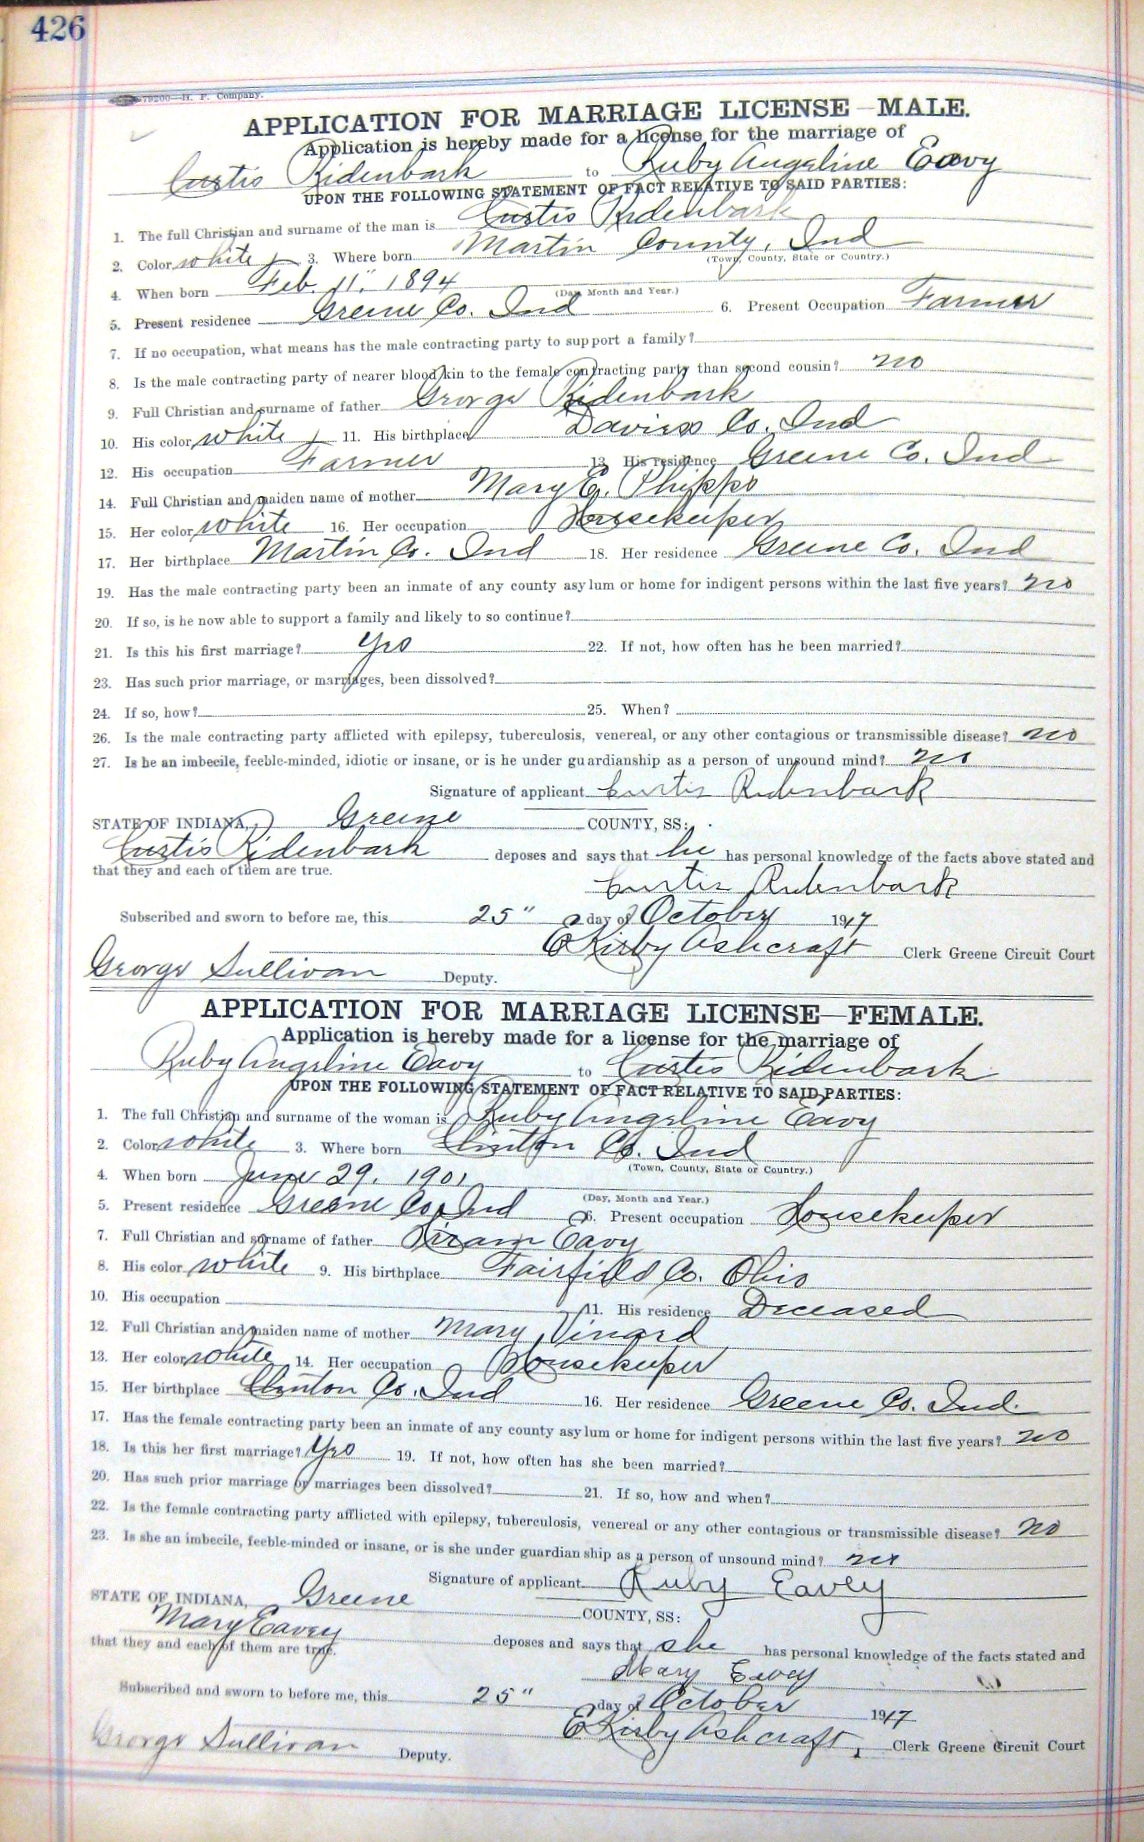 426
79200—H. P. Company.
APPLICATION FOR MARRIAGE LICENSE—MALE.
Application is hereby made for a license for the marriage of
Curtis Ridenbark to Ruby Angeline Eavy
UPON THE FOLLOWING STATEMENT OF FACT RELATIVE TO SAID PARTIES:
1. The full Christian and surname of the man is Curtis Ridenbark
2. Color white 3. Where born Martin County, Ind
(Town, County, State or Country.)
4. When born Feb. 11" 1894
(Day, Month and Year.)
5. Present residence Greene Co. Ind 6. Present Occupation Farmer
7. If no occupation, what means has the male contracting party to support a family?
8. Is the male contracting party of nearer blood kin to the female contracting party than second cousin? no
9. Full Christian and surname of father George Ridenbark
10. His color white 11. His birthplace Daviess Co. Ind
12. His occupation Farmer 13. His residence Greene Co. Ind
14. Full Christian and maiden name of mother Mary E. Phipps
15. Her color white 16. Her occupation Housekeeper
17. Her birthplace Martin Co. Ind 18. Her residence Greene Co. Ind
19. Has the male contracting party been an inmate of any county asylum or home for indigent persons within the last five years? no
20. If so, is he now able to support a family and likely to so continue?
21. Is this his first marriage? Yes 22. If not, how often has he been married?
23. Has such prior marriage, or marriages, been dissolved?
24. If so, how? 25. When?
26. Is the male contracting party afflicted with epilepsy, tuberculosis, venereal, or any other contagious or transmissible disease? no
27. Is he an imbecile, feeble-minded, idiotic or insane, or is he under guardianship as a person of unsound mind? no
Signature of applicant Curtis Ridenbark
STATE OF INDIANA, Greene COUNTY, SS:
Curtis Ridenbark deposes and says that he has personal knowledge of the facts above stated and
that they and each of them are true.
Curtis Ridenbark
Subscribed and sworn to before me, this 25" day of October 1917
E Kirby Ashcraft Clerk Greene Circuit Court
George Sullivan Deputy.
APPLICATION FOR MARRIAGE LICENSE—FEMALE.
Application is hereby made for a license for the marriage of
Ruby Angeline Eavy to Curtis Ridenbark
UPON THE FOLLOWING STATEMENT OF FACT RELATIVE TO SAID PARTIES:
1. The full Christian and surname of the woman is Ruby Angeline Eavy
2. Color white 3. Where born Clinton Co. Ind
(Town, County, State or Country.)
4. When born June 29, 1901
(Day, Month and Year.)
5. Present residence Greene Co, Ind 6. Present occupation Housekeeper
7. Full Christian and surname of father Hiram Eavy
8. His color white 9. His birthplace Fairfield Co. Ohio
10. His occupation 11. His residence Deceased
12. Full Christian and maiden name of mother Mary Vinard
13. Her color white 14. Her occupation Housekeeper
15. Her birthplace Clinton Co. Ind 16. Her residence Greene Co. Ind.
17. Has the female contracting party been an inmate of any county asylum or home for indigent persons within the last five years? no
18. Is this her first marriage? Yes 19. If not, how often has she been married?
20. Has such prior marriage or marriages been dissolved? 21. If so, how and when?
22. Is the female contracting party afflicted with epilepsy, tuberculosis, venereal or any other contagious or transmissible disease? no
23. Is she an imbecile, feeble-minded or insane, or is she under guardianship as a person of unsound mind? no
Signature of applicant Ruby Eavey
STATE OF INDIANA, Greene COUNTY, SS:
Mary Eavey deposes and says that she has personal knowledge of the facts stated and
that they and each of them are true.
Mary Eavey
Subscribed and sworn to before me, this 25" day of October 1917
E Kirby Ashcraft, Clerk Greene Circuit Court
George Sullivan Deputy.